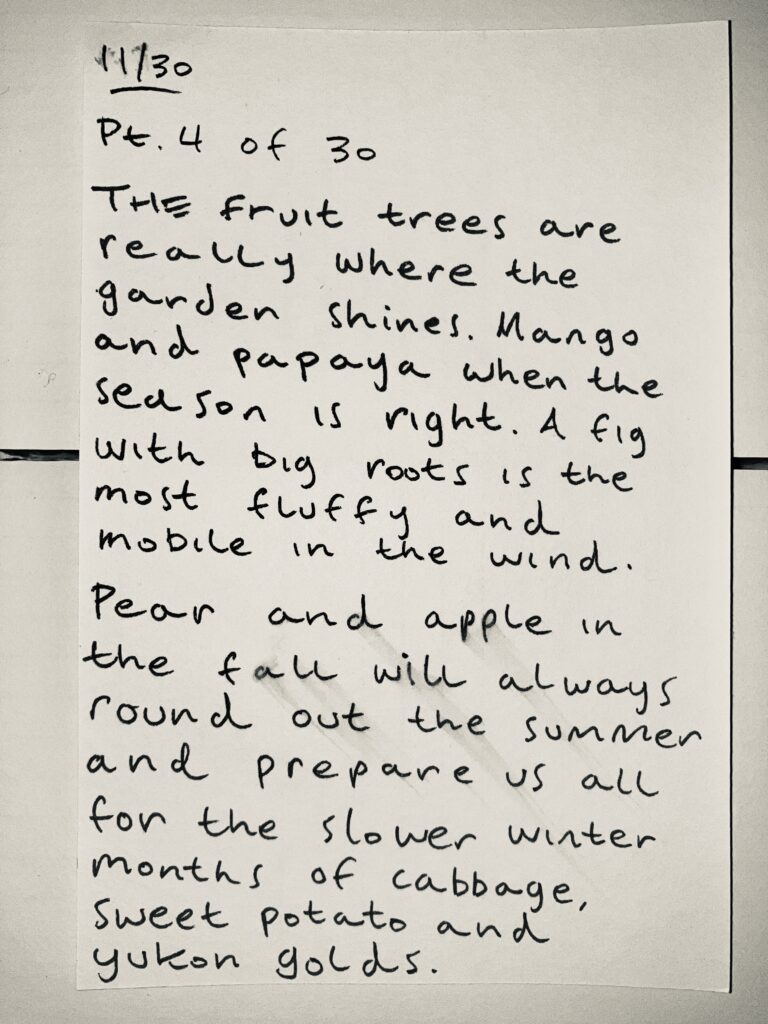 11/30
Pt. 4 of 30
THE fruit trees are
really where the
garden shines. Mango
and papaya when the
season is right. A fig
with big roots is the
most fluffy and
mobile in the wind.
Pear and apple in
the fall will always
round out the summer
and prepare us all
for the slower winter
months of cabbage,
sweet potato and
yukon golds.